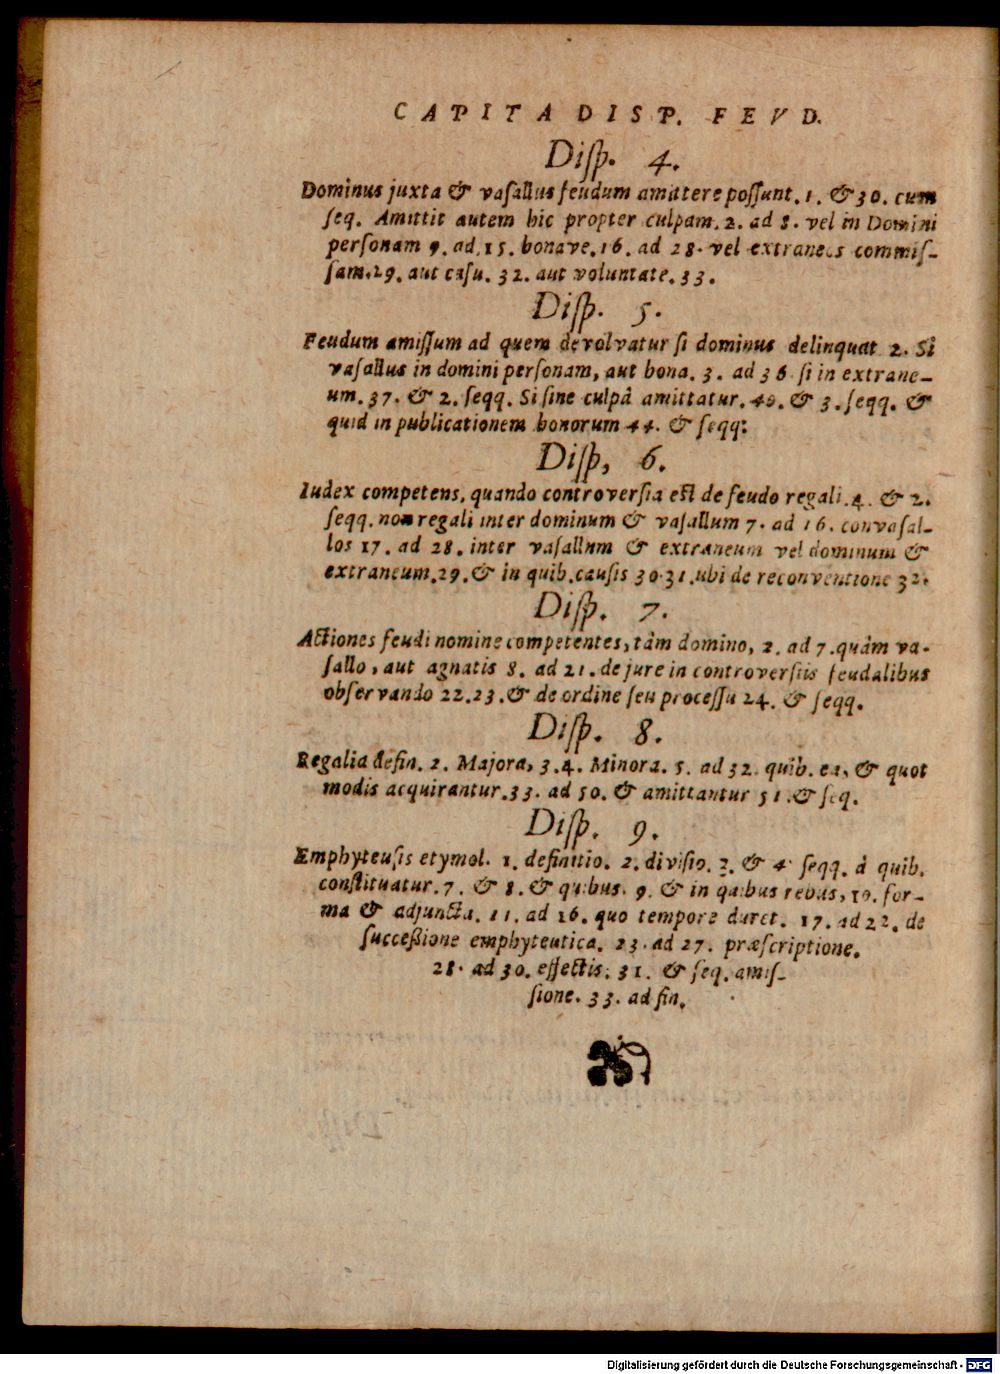 CAPITA DISP. FEVD.
Disp. 4.
Dominus juxta & vasallus feudum amittere possunt. 1. & 30. cum
seq. Amittit autem hic propter culpam. 2. ad 8. vel in Domini
personam 9. ad. 15. bonave. 16. ad 28. vel extraneos commis-
sam. 29. aut casu. 32. aut voluntate. 33.
Disp. 5.
Feudum amissum ad quem devolvatur si dominus delinquat 2. Si
vasallus in domini personam, aut bona. 3. ad 36 si in extrane-
um. 37. & 2. seqq. Si sine culpâ amittatur. 40. & 3. seqq. &
quid in publicationem bonorum 44. & seqq:
Disp, 6.
Iudex competens, quando controversia est de feudo regali. 4. & 2.
seqq. non regali inter dominum & vasallum 7. ad 16. convasal-
los 17. ad 28. inter vasallum & extraneum vel dominum &
extraneum. 29. & in quib. causis 30. 31. ubi de reconventione 32.
Disp. 7.
Actiones feudi nomine competentes, tàm domino, 2. ad 7. quàm va-
sallo, aut agnatis 8. ad 21. de jure in controversiis feudalibus
observando 22. 23. & de ordine seu processu 24. & seqq.
Disp. 8.
Regalia defin. 2. Majora, 3. 4. Minora. 5. ad 32. quib. ea, & quot
modis acquirantur. 33. ad 50. & amittantur 51. & seq.
Disp. 9.
Emphyteusis etymol. 1. definitio. 2. divisio. 3. & 4. seqq. à quib.
constituatur. 7. & 8. & quibus. 9. & in quibus rebus, 10. for-
ma & adjuncta. 11. ad 16. quo tempore duret. 17. ad 22. de
successione emphyteutica. 23. ad 27. præscriptione.
28. ad 30. effectis. 31. & seq. amis-
sione. 33. ad fin.
Digitalisierung gefördert durch die Deutsche Forschungsgemeinschaft - DFG